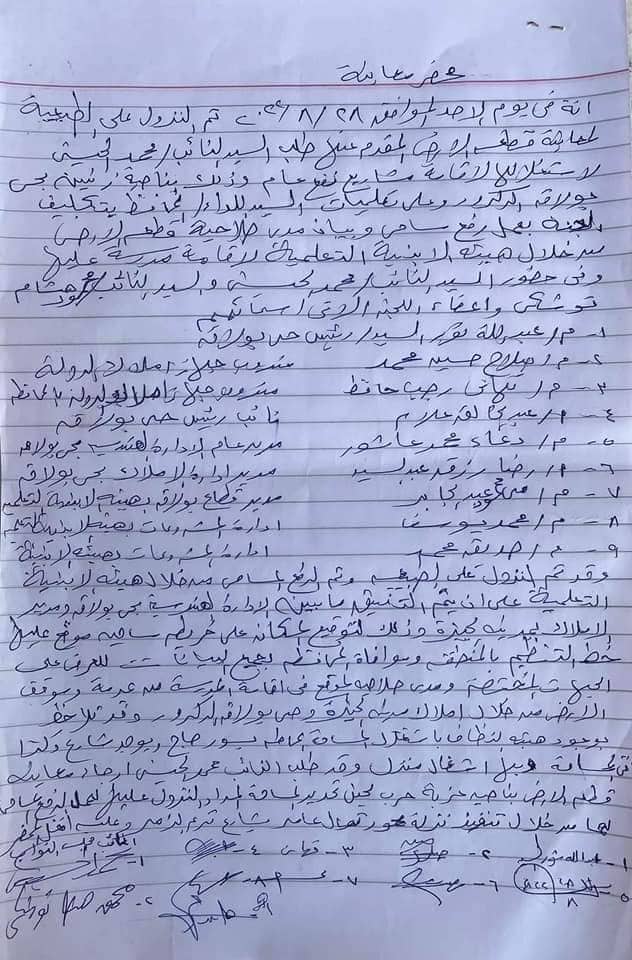 محضر معاينة
انة فى يوم الاحد الموافق ٢٨ / ٨ / ٢٠٢٢ تم النزول على الطبيعية
لمعاينة قطعه الارض المقدم عنها طلب السيد النائب / محمد الحسينى
لاستغلالها لاقامة مشاريع نفع عام وذلك بناحية زنين بحى
بولاق الدكرور وعلى تعليمات السيد اللواء / المحافظ بتكليف
اللجنة بعمل رفع مساحى وبيان مدى صلاحية قطعه الارض
من خلال هيئة الابنية التعلمية لاقامة مدرسة عليها
وفى حضور السيد النائب / محمد الحسينى والسيد النائب / هشام
واعضاء اللجنه الاتى اسمائهم
١ - م / عبدالله نور السيد / رئيس حى بولاق
٢ - م / صلاح حسين محمد مندوب املاك الدولة
٣ - م / تهانى رجب حافظ مندوب املاك الدولة بالمحافظه
٤ - م / علام نائب رئيس حى بولاق
٥ - م / دعاء محمد عاشور مدير عام الادارة الهندسية بحى بولاق
٦ - م / رضا رزق عبدالسيد مدير ادارة الاملاك بحى بولاق
٧ - م / مدير قطاع بولاق بهيئة الابنية التعلمية
٨ - م / محمد يوسف ادارة المشروعات بهيئة الابنية التعلمية
٩ - م / صديق محمد ادارة المشروعات بهيئة الابنية
وقد تم النزول على الطبيعه وتم الرفع المساحى من خلال هيئة الابنية
التعلمية على ان يتم التنسيق ما بين الادارة الهندسية بحى بولاق ومدير
الاملاك بمدينة الجيزة وذلك لتوقيع المكان على خريطه مساحيه موقع عليها
خط التنظيم بالمنطقه وموافاة المحافظه بجميع البيانات للعرض على
الجهات المختصة ومدى صلاحية الموقع فى اقامة المدرسة من عدمة وموقف
الارض من خلال املاك مدينة الجيزة وحى بولاق الدكرور وقد تلاحظ
بوجود هيئة النظافة باستغلال المساحة المحاطه بسور صاج ويوجد شارع وكذا
فى المساحة اشغال منزل وقد طلب النائب محمد الحسينى ارجاء معاينة
قطعه الارض بناحيه جزيرة حرب لحين تحديد المساحة المراد النزول عليها لعمل الرفع المساحى
لها من خلال تنفيذ نزلة محور شارع ترعة الزمر وعليه اقفل المحضر
١ - عبدالله نور ٢ - ٣ - تهانى ٤ -
٥ - ٦ - ٧ - ٨ -
٢ - محمود هشام